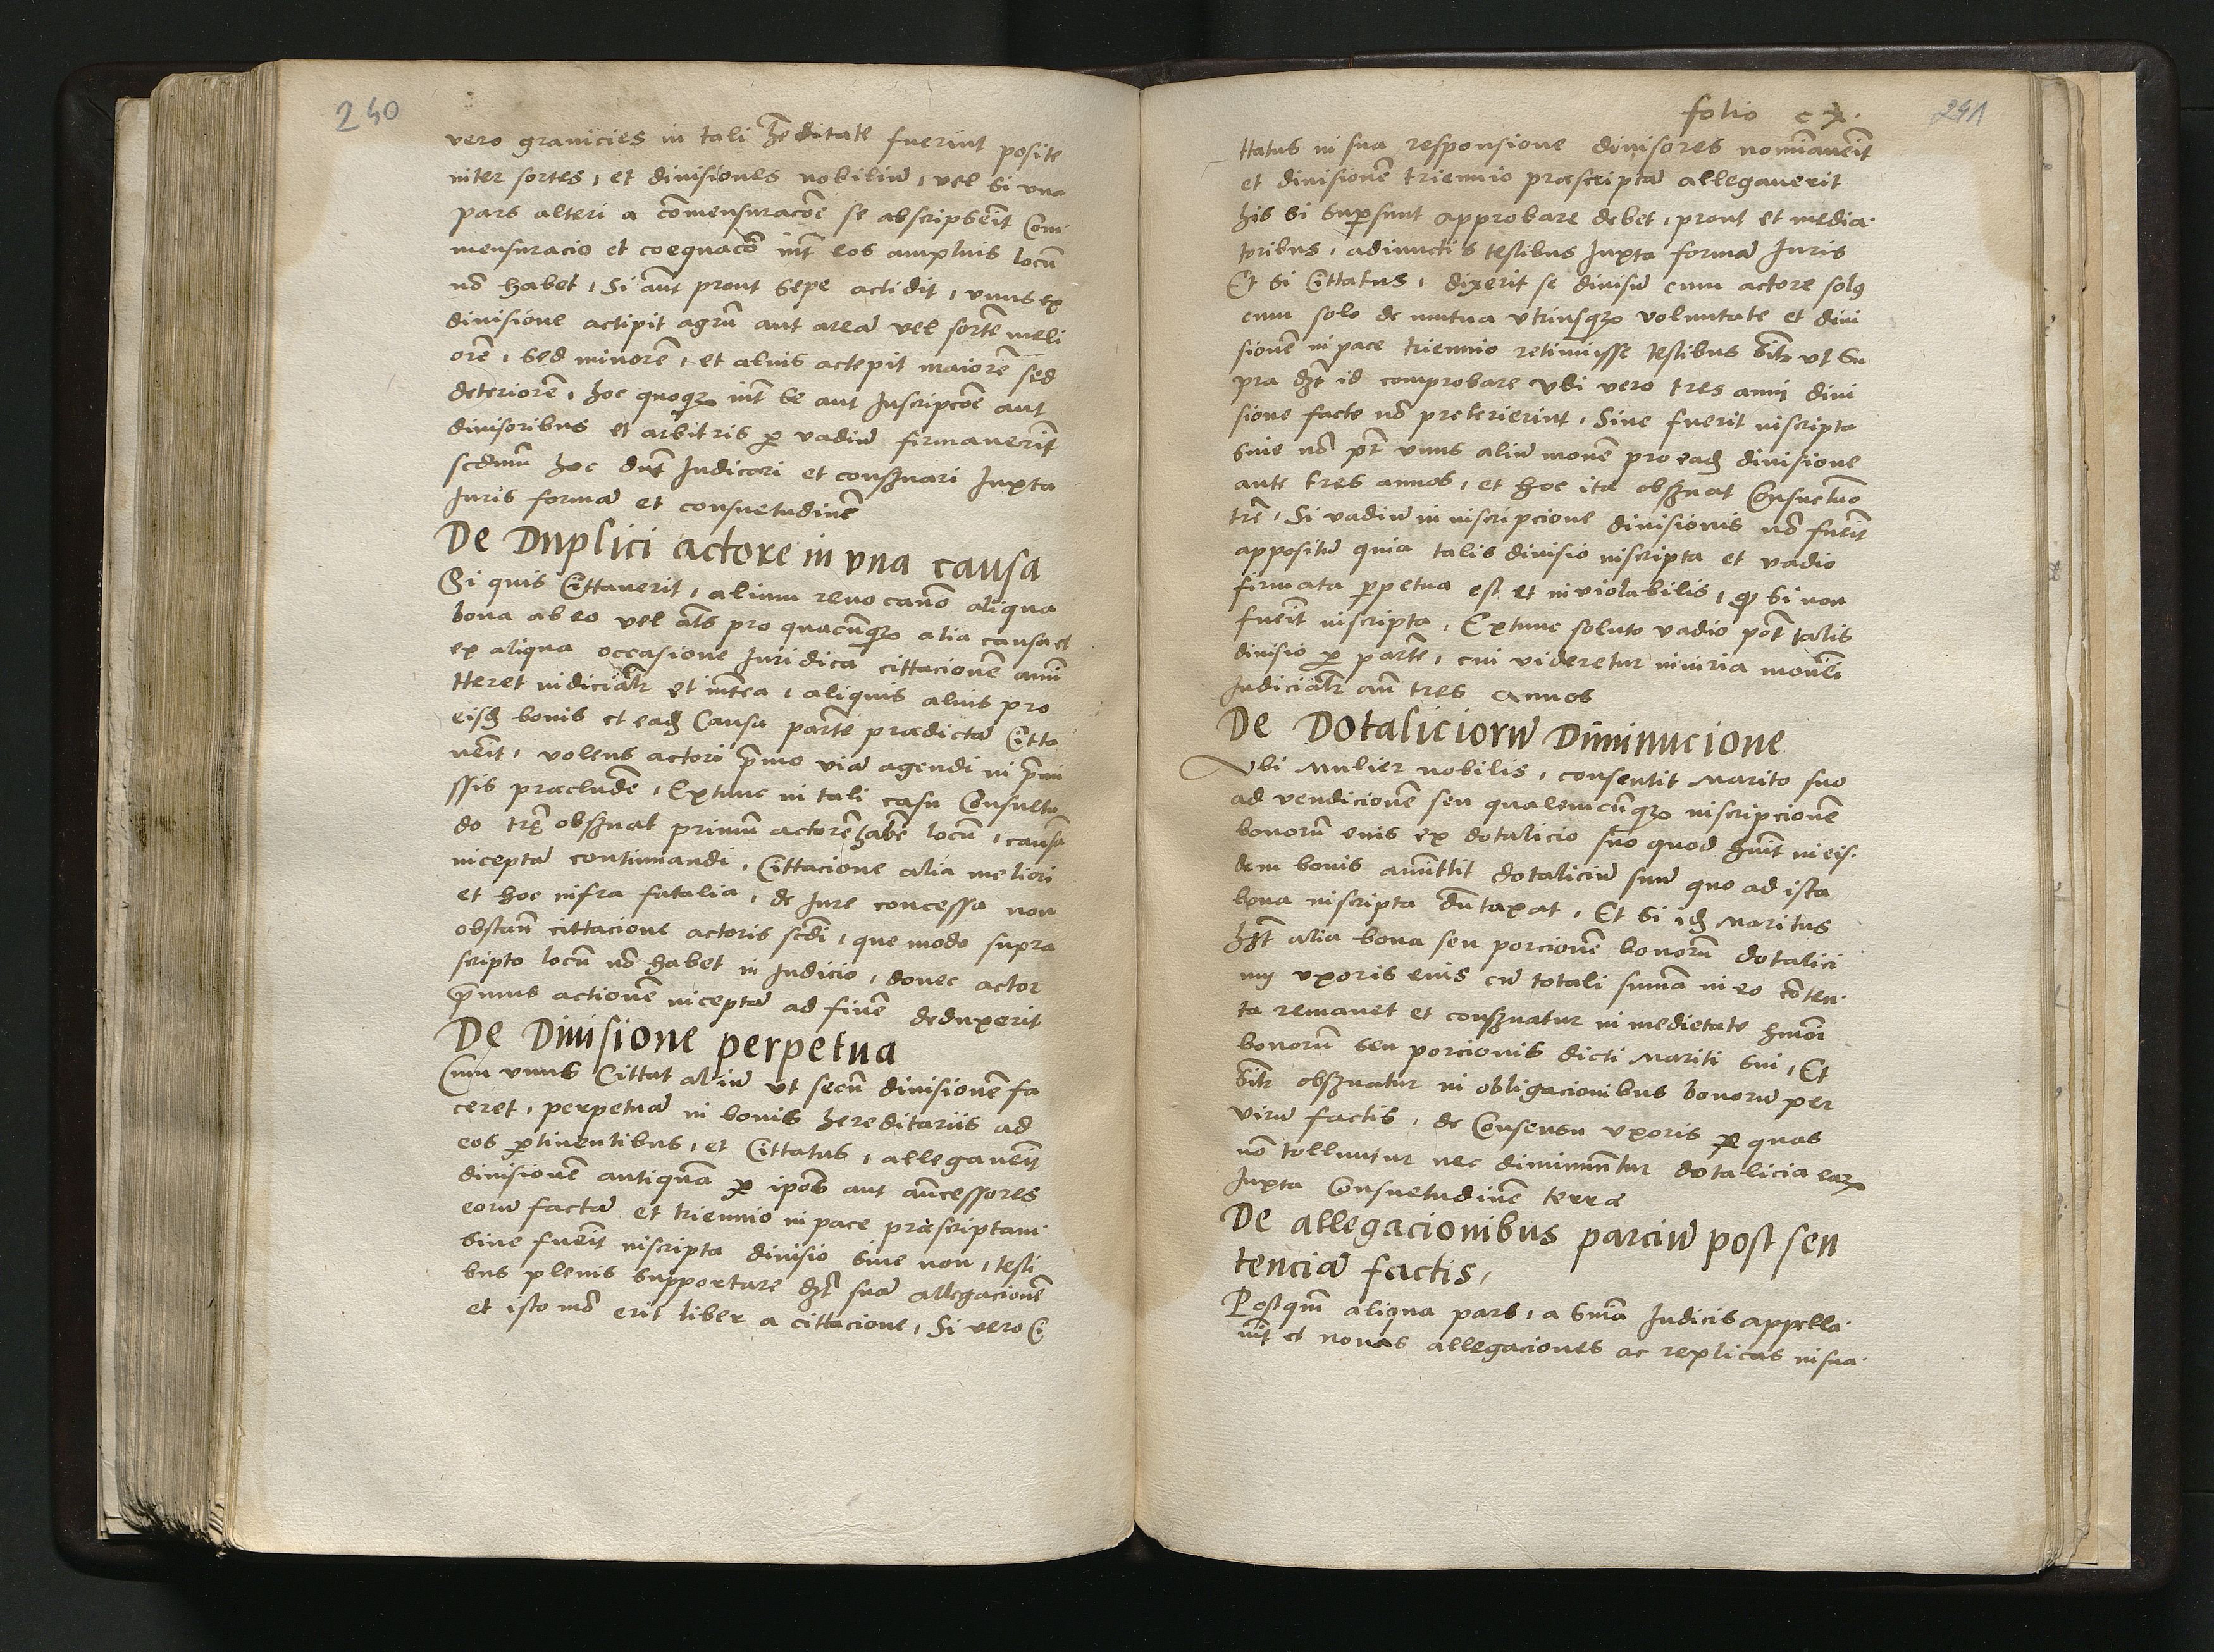 240
vero granicies in tali hēditate fuerint posite
inter sortes, et divisiones nobiliū, vel si una
pars alteri a cōmensuracōe se abscripsēit Com
mensuracio et coequacō int̄ eos amplius locū
nō habet, Si aūt prout sepe accidit, unus ex
divisione accipit agrū aut areā vel sortē meli
orē, sed minorē, et alius accepit maiorē sed
deteriorē, hoc quoqꝫ int̄ se aut Inscripcōe aut
divisoribus et arbitris ꝑ vadiū firmaverīt
scdmū hoc dnt Iudicari et consꝫvari Iuxta
Iuris formā et consuetudinē
De Duplici actore in una causa
Si quis Cittaverit, alium revocanō aliqua
bona ab eo vel ats pro quacūqꝫ alia causa et
ex aliqua occasione Iuridica cittacionē ami
tteret iudicialr et intea, aliquis alius pro
eisd bonis et ead Causa partē prædictā Citta
vēit, volens actori pmo viā agendi in pmi
ssis præcludē, Extunc in tali casu Consuetu
do trē obsꝫvat primū actorē habē locū, causā
inceptā continuandi, Cittacione alia meliori
et hoc infra fatalia, de Iure concessa non
obstan̄ cittacione actoris scdi, que modo supra
scripto locū nō habet in Iudicio, donec actor
pmus actionē inceptā ad finē deduxerit
De Divisione perpetua
Cum unus Cittat aliū ut secū divisionē fa
ceret, perpetuā in bonis hereditariis ad
eos ꝑtinentibus, et Cittatus, allegavēit
divisionē antiquā ꝑ ipos aut an̄cessores
eorū factā et triennio in pace præscriptam
sive fuēit inscripta divisio sive non, testi
bus plenis supportare dꝫt suā allegacionē
et isto mō erit liber a cittacione, Si vero Ci
folio cx.
241
ttatus in sua responsione divisores nominavēit
et divisionē triennio præscriptā allegaverit
his si supersunt approbare debet, prout et media
toribus, adiunctis testibus Iuxta formā Iuris
Et si Cittatus, dixerit se divisū cum actore solꝰ
cum solo de mutua utriusqꝫ voluntate et divi
sionē in pace triennio retinuisse testibus silr ut su
pra dꝫt id comprobare Ubi vero tres anni divi
sione facte nō preterierint, Sive fuerit inscripta
sive nō pt unus aliū monē pro ead divisione
ante tres annos, et hoc ita obsꝫvat Consuetuo
trē, Si vadiū in inscripcione divisionis nō fuēit
appositū quia talis divisio inscripta et vadio
firmata ꝑpetua est et inviolabilis, qd si non
fuēit inscripta, Extunc soluto vadio pōt talis
divisio ꝑ partē, cui videretur iniuria movēi
Iudicialr an̄ tres annos
De Dotaliciorū Diminucione
Ubi Mulier nobilis, consentit Marito suo
ad vendicionē seu qualemcūqꝫ inscripcionē
bonorū eius ex dotalicio suo quod huit in eis
dem bonis amittit dotaliciū suū quo ad ista
bona inscripta dūtaxat, Et si id Maritus
hꝫt alia bona seu porcionē bonorū dotalici
um uxoris eius cū totali summā in eo cōten
ta remanet et consꝫvatur in medietate hmōi
bonorū seu porcionis dicti Mariti sui, Et
silr obsꝫvatur in obligacionibus bonorū per
virū factis, de Consensu uxoris ꝑ quas
nō tolluntur nec diminuūtur dotalicia eaꝝ
Iuxta Consuetudinē terræ
De allegacionibus parciū post sen
tenciā factis,
Postqm̄ aliqua pars, a snia Iudicis appella
vit et novas allegaciones ac replicas in sua